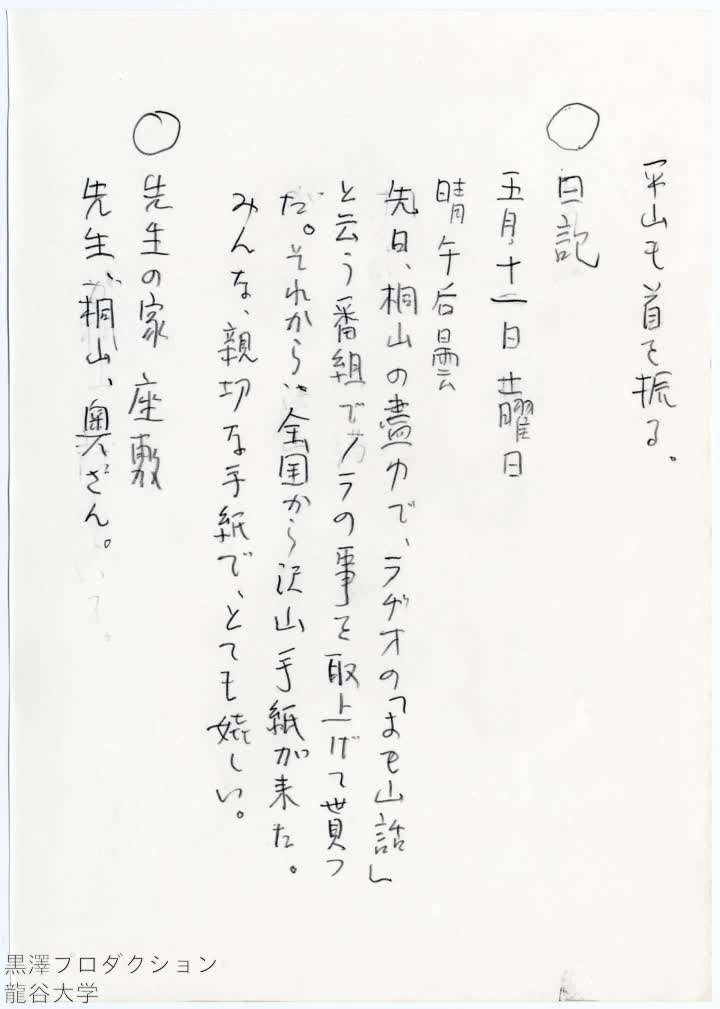 平山も首を振る。
○ 日記
五月十一日 土曜日
晴午后曇
先日、桐山の盡力で、ラヂオの「よも山話」
と云う番組でノラの事を取上げて貰つ
た。それから、全国から沢山手紙が来た。
みんな、親切な手紙で、とても嬉しい。
○ 先生の家 座敷
先生、桐山、奥さん。
黒澤プロダクション
龍谷大学